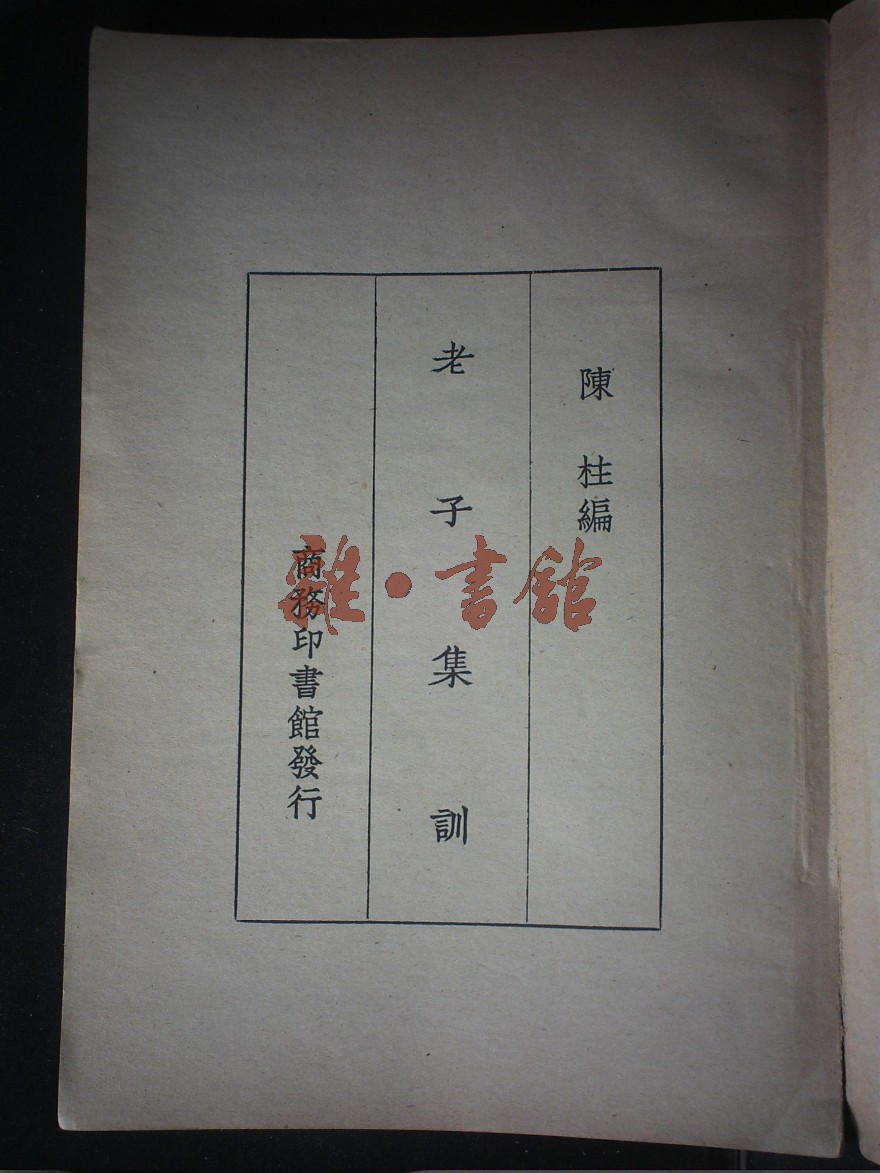 陳柱編
老子集訓
商務印書館發行
雜·書館